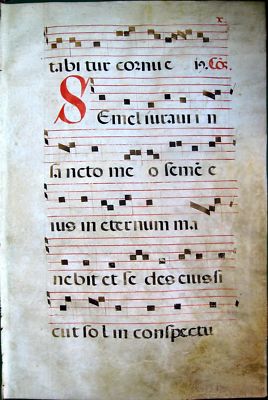 x.
tabitur cornu e 19. Co͞.
Semel iuraui in
sancto meo semē e
ius in eternum ma
nebit et sedes eius si
cut sol in conspectu